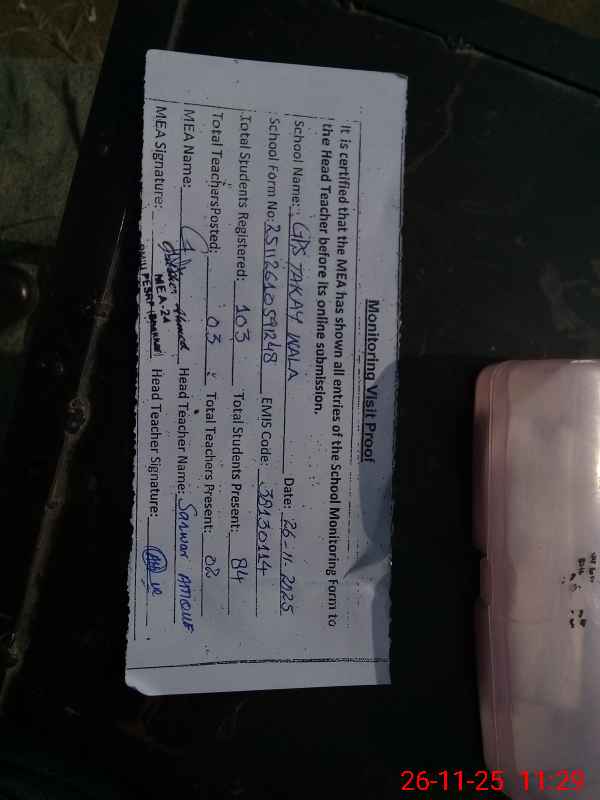 Monitoring Visit Proof
It is certified that the MEA has shown all entries of the School Monitoring Form to
the Head Teacher before its online submission.
School Name: GPS TAKAY WALA Date: 26-11-2025
School Form No: 25112610591248 EMIS Code: 38130114
Total Students Registered: 103 Total Students Present: 84
Total TeachersPosted: 03 Total Teachers Present: 02
MEA Name: Ahmed Head Teacher Name: Sarwar ATIQUE
MEA Signature: Head Teacher Signature:
MEA-24
26-11-25 11:29